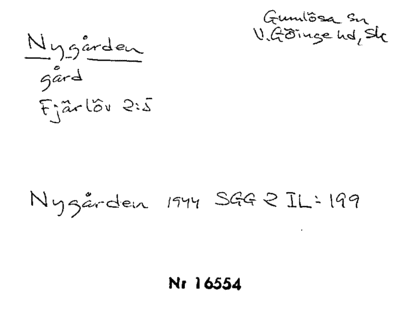 Gumlösa sn
V. Göinge hd, Sk
Nygården
gård
Fjärlöv 2:5
Nygården 1944 SGG 2 II L: 199
Nr 16554